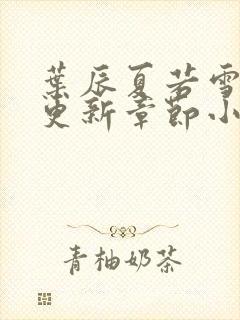 葉辰夏若雪
更新章節小
青柚奶茶